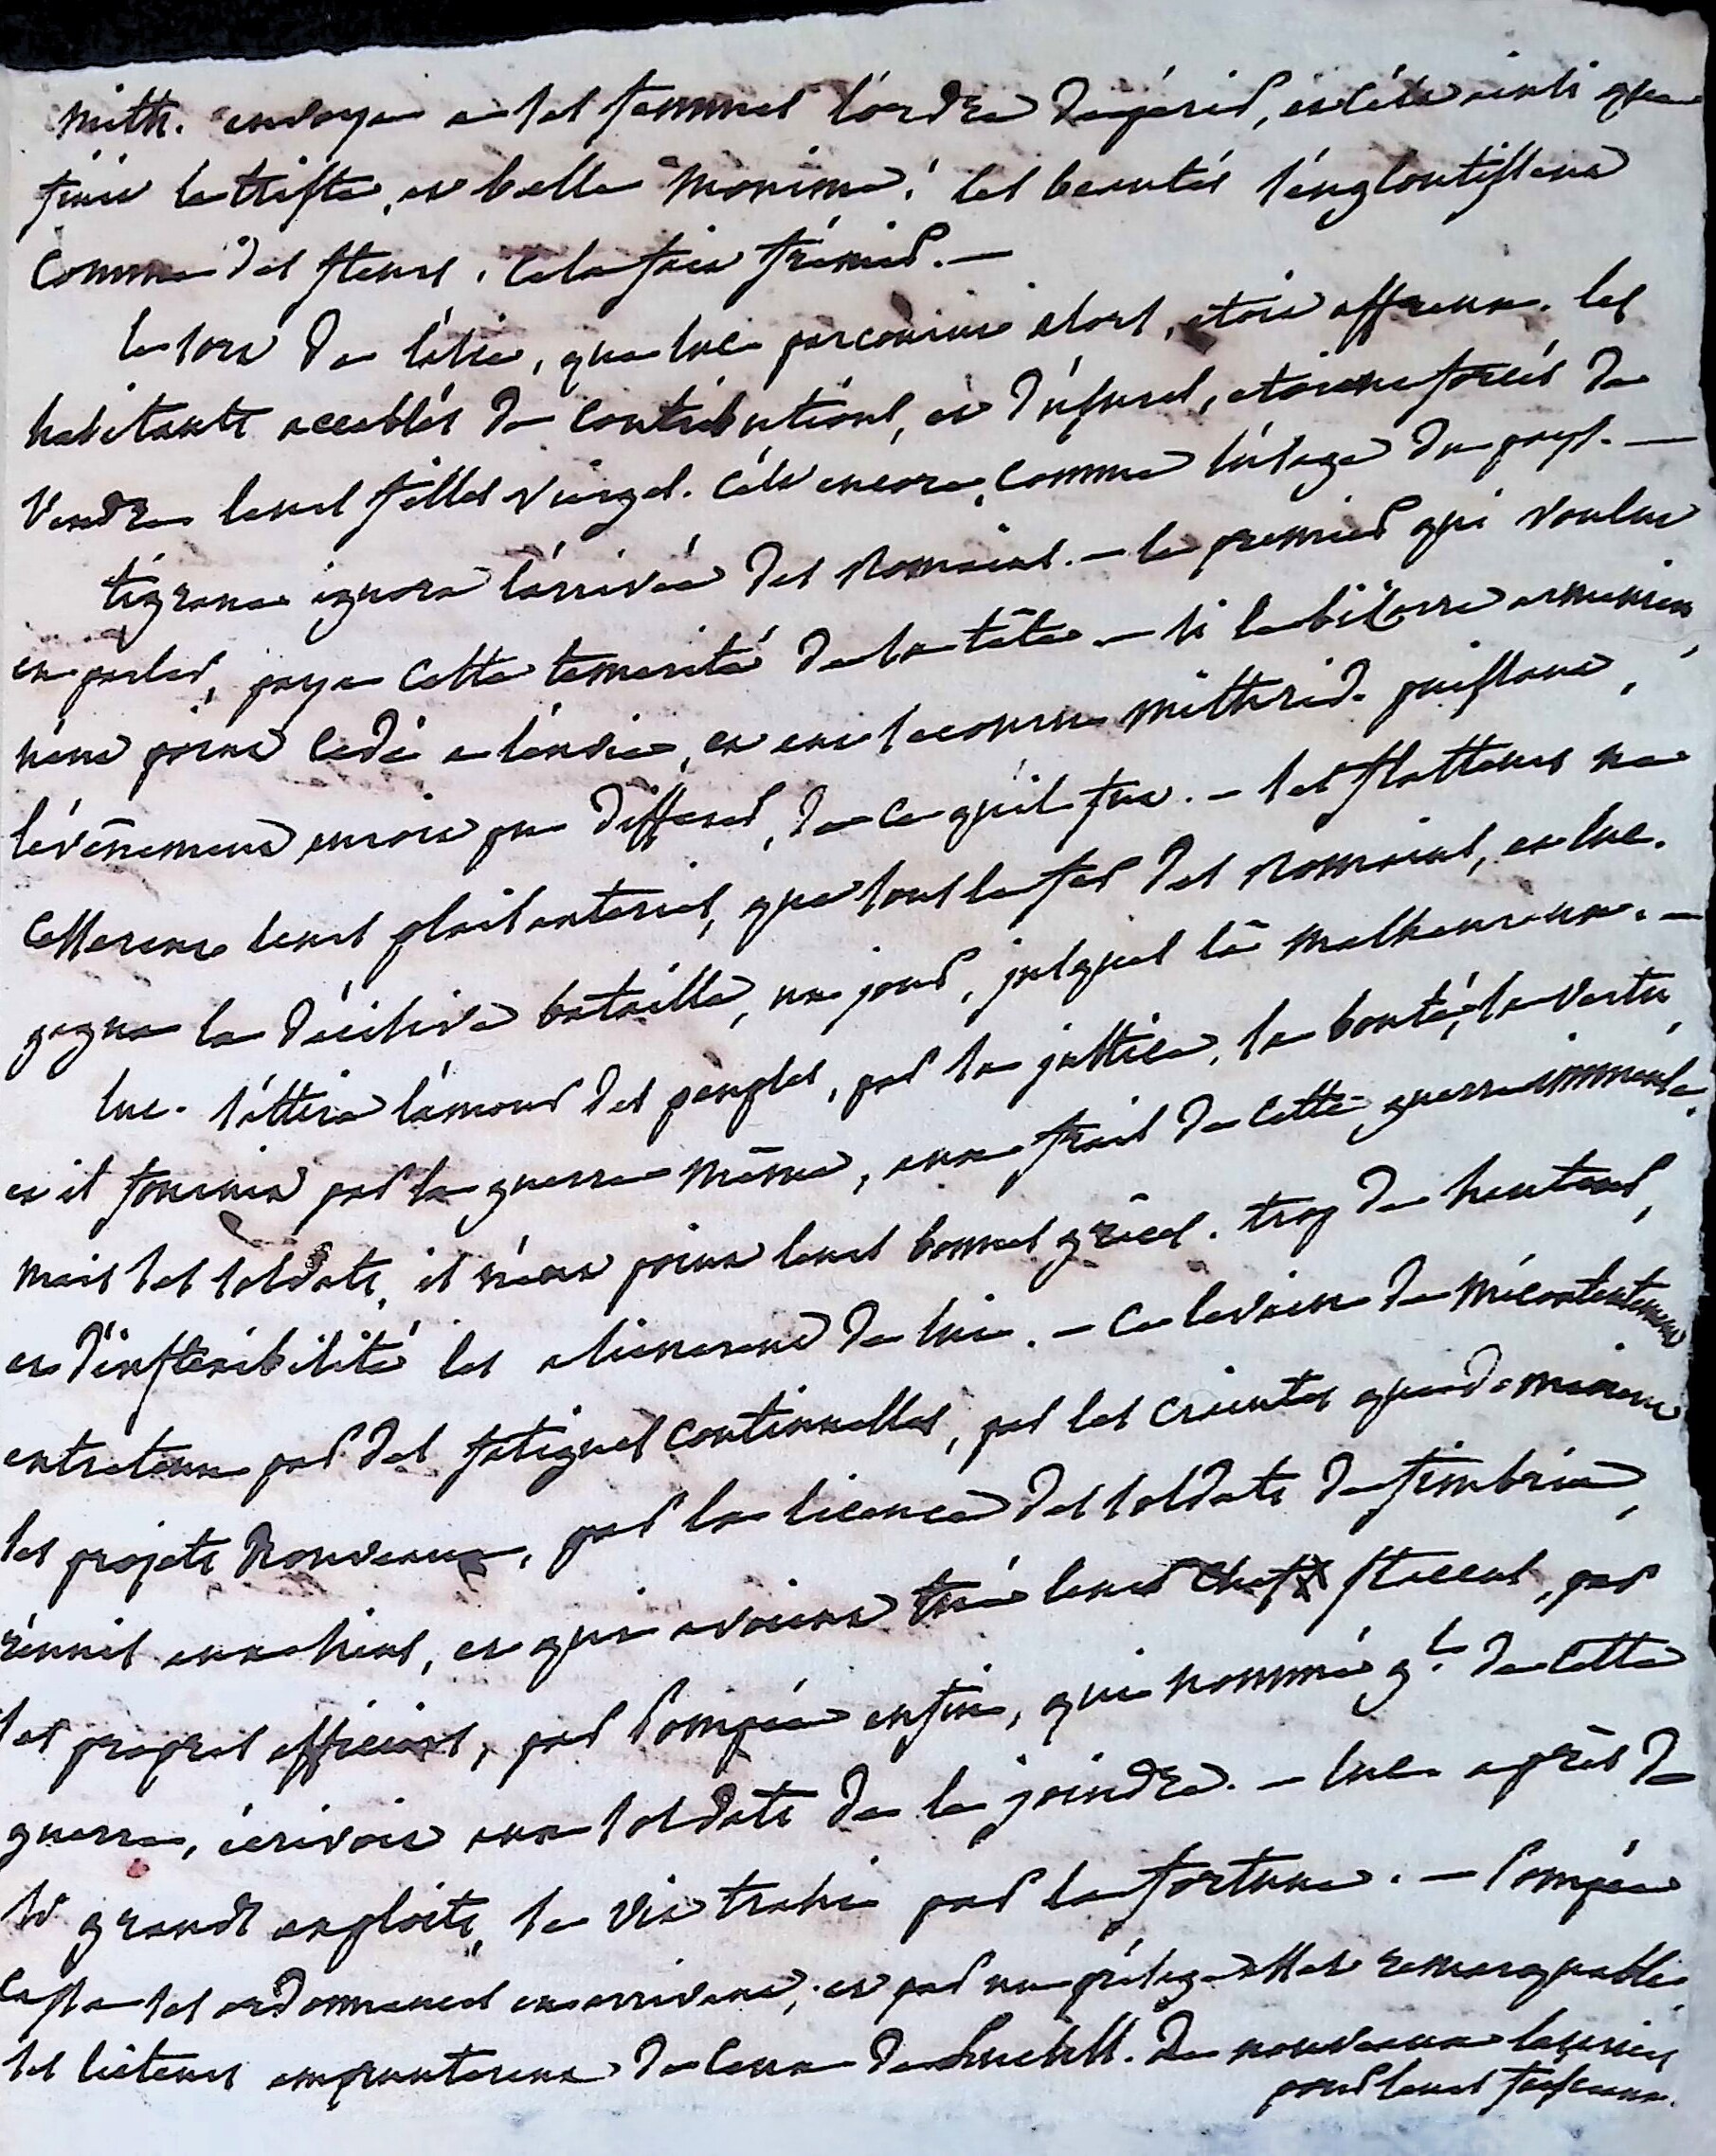 mith. envoya a ses femmes l'ordre de périr, et c'est ainsi que
finit la triste, et belle monime! les beautés s'engloutissent
comme des fleurs. cela fait frémir. —
le sort de l'asie, que luc. parcourut alors, étoit affreux. les
habitants accablés de contributions, et d'usures, etoient forcés de
vendre leurs filles vierges. c'est encore, comme l'usage du pays. —
tigrane ignora l'arrivée des Romains. — le premier qui voulut
en parler, paya cette temerité de la tête — si le bizarre armenien,
n'eut point cedé a l'envie, et eut secouru mithrid. puissant,
l'évênement auroit pu differer, de ce qu'il fut. — ses flatteurs ne
cesserent leurs plaisanteries, que sous le fer des Romains, et luc.
gagna la décisive bataille, un jour, jusques là malheureux. —
luc. s'attira l'amour des peuples, par sa justice, sa bonté, sa vertu,
et il fournit par la guerre même, aux frais de cette guerre immense.
mais ses soldats, il n'eut point leurs bonnes grâces. trop de hauteur,
et d'inflexibilité les alienerent de lui. — ce levain de mécontentement
entretenu par des fatigues continuelles, par les craintes que donnoient
ses projets nouveaux, par la licence des soldats de fimbria,
réunis aux siens, et qui avoient tué leur chef flaccus, par
ses propres officiers, par Pompée enfin, qui nommé g.l de cette
guerre, écrivoit aux soldats de le joindre. — luc. après de
si grands exploits, se vit trahi par la fortune. — Pompée
cassa ses ordonnances en arrivant, et par un présage assez remarquable
ses licteurs emprunterent de ceux de Lucull. de nouveaux lauriers
pour leurs faisceaux.